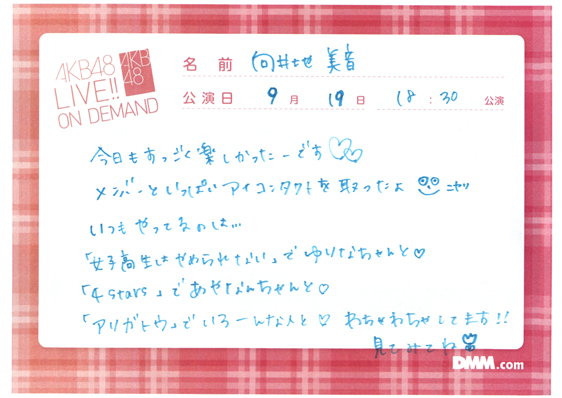 AKB48
LIVE!!
ON DEMAND
AKB
48
名 前 向井地 美音
公演日 9 月 19 日 18 : 30 公演
今日もすっごく楽しかったーです♡♡
メンバーといっぱいアイコンタクトを取ったよ ニヤリ
いつもやってるのは…
「女子高生はやめられない」でゆりなちゃんと♡
「4 stars」であやなんちゃんと♡
「アリガトウ」でいろーんな人と♡ わちゃわちゃしてます!!
見てみてね
DMM.com